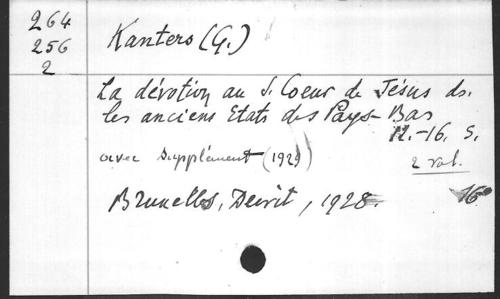 264
256
2
Kanters (G.)
La dévotion au S. Coeur de Jésus ds.
les anciens Etats des Pays-Bas
12.-16. s.
avec Supplément (1929)
2 vol.
Bruxelles, Dewit, 1928.
16°